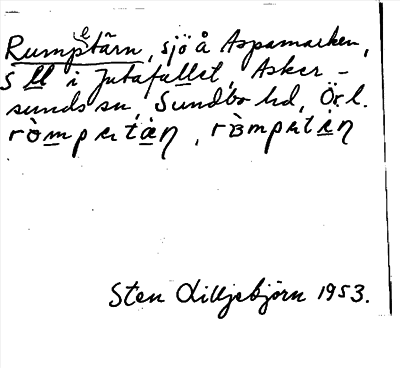 Rumpetärn, sjö å Aspamarken,
S ll i Jutafallet, Asker-
sunds sn, Sundbo hd, Örl.
ròmpetæ̀n, ròmpetèn
Sten Lilljebjörn 1953.